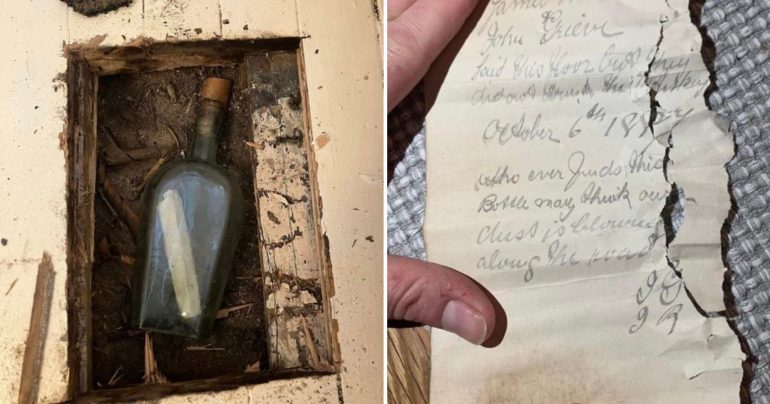 James
John Grieve
laid this floor but they
did not drink the whisky
October 6th 1887
who ever finds this
Bottle may think our
dust is blowing
along the road
J G
J R